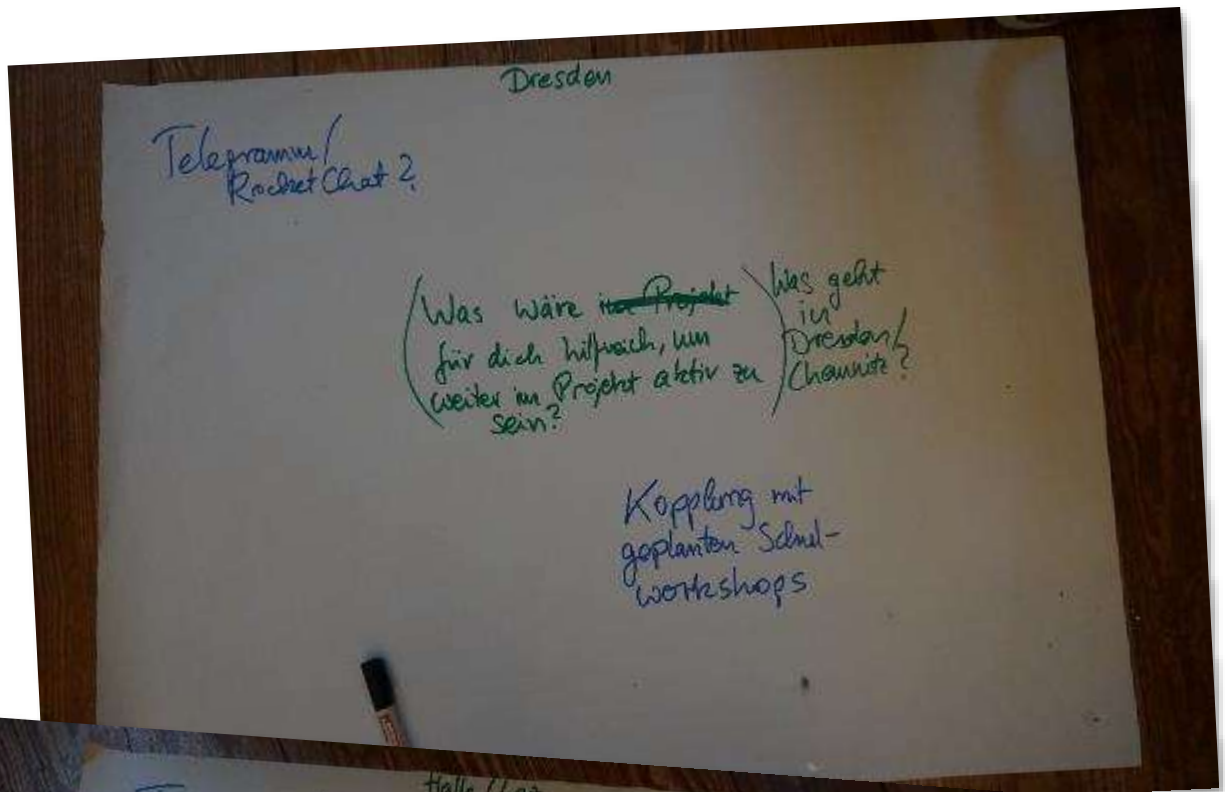 Dresden
Telegramm/
RocketChat?
(Was wäre
für dich hilfreich, um
weiter im Projekt aktiv zu
sein?)
Was geht
in
Dresden/
Chemnitz?
Kopplung mit
geplanten Schul-
workshops
Halle